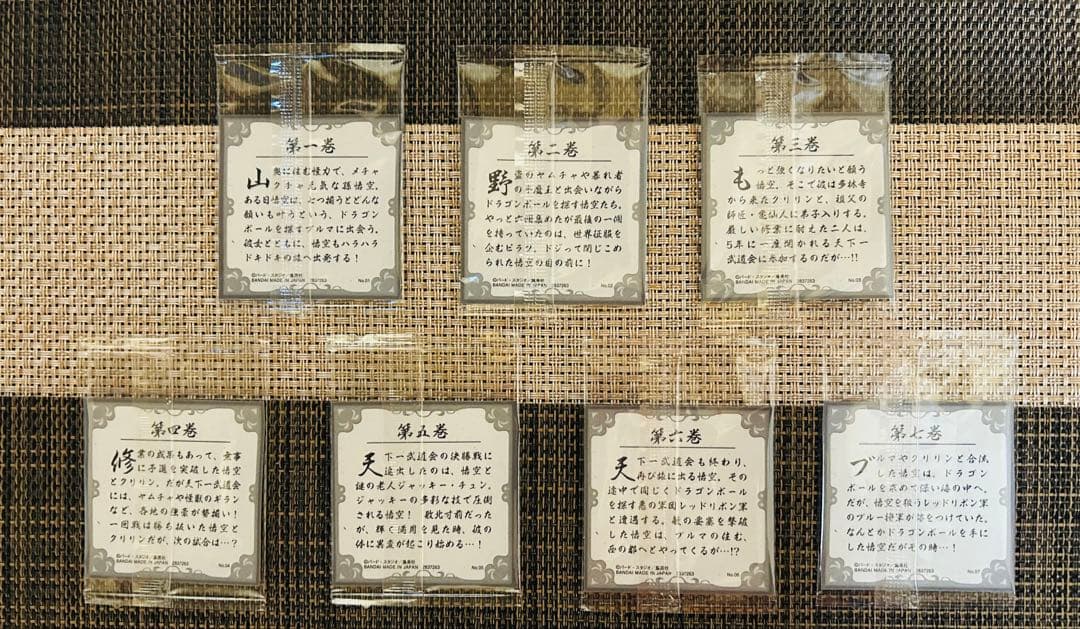 第一巻
山奥に住む怪力で、メチャ
クチャ元気な孫悟空。
ある日悟空は、七つ揃うとどんな
願いも叶うという、ドラゴン
ボールを探すブルマに出会う。
彼女とともに、悟空もハラハラ
ドキドキの旅へ出発する!
©バード・スタジオ/集英社
BANDAI MADE IN JAPAN 2637263 No.01
第二巻
野盗のヤムチャや暴れ者
の牛魔王と出会いながら
ドラゴンボールを探す悟空たち。
やっと六個集めたが最後の一個
を持っていたのは、世界征服を
企むピラフ。ドジって閉じこめ
られた悟空の目の前に!
©バード・スタジオ/集英社
BANDAI MADE IN JAPAN 2637263 No.02
第三巻
もっと強くなりたいと願う
悟空。そこで彼は多林寺
から来たクリリンと、祖父の
師匠・亀仙人に弟子入りする。
厳しい修業に耐えた二人は、
5年に一度開かれる天下一
武道会に参加するのだが…!!
©バード・スタジオ/集英社
BANDAI MADE IN JAPAN 2637263 No.03
第四巻
修業の成果もあって、無事
に予選を突破した悟空
とクリリン。だが天下一武道会
には、ヤムチャや怪獣のギラン
など、各地の強豪が勢揃い!
一回戦は勝ち抜いた悟空と
クリリンだが、次の試合は…?
©バード・スタジオ/集英社
BANDAI MADE IN JAPAN 2637263 No.04
第五巻
天下一武道会の決勝戦に
進出したのは、悟空と
謎の老人ジャッキー・チュン。
ジャッキーの多彩な技で圧倒
される悟空! 敗北寸前だった
が、輝く満月を見た時、彼の
体に異変が起こり始める…!
©バード・スタジオ/集英社
BANDAI MADE IN JAPAN 2637263 No.05
第六巻
天下一武道会も終わり、
再び旅に出る悟空。その
途中で同じくドラゴンボール
を探す悪の軍団レッドリボン軍
と遭遇する。敵の要塞を撃破
した悟空は、ブルマの住む、
西の都へとやってくるが…!?
©バード・スタジオ/集英社
BANDAI MADE IN JAPAN 2637263 No.06
第七巻
ブルマやクリリンと合流
した悟空は、ドラゴン
ボールを求めて深い海の中へ。
だが、悟空を狙うレッドリボン軍
のブルー将軍が後をつけていた。
なんとかドラゴンボールを手に
した悟空だがその時…!
©バード・スタジオ/集英社
BANDAI MADE IN JAPAN 2637263 No.07